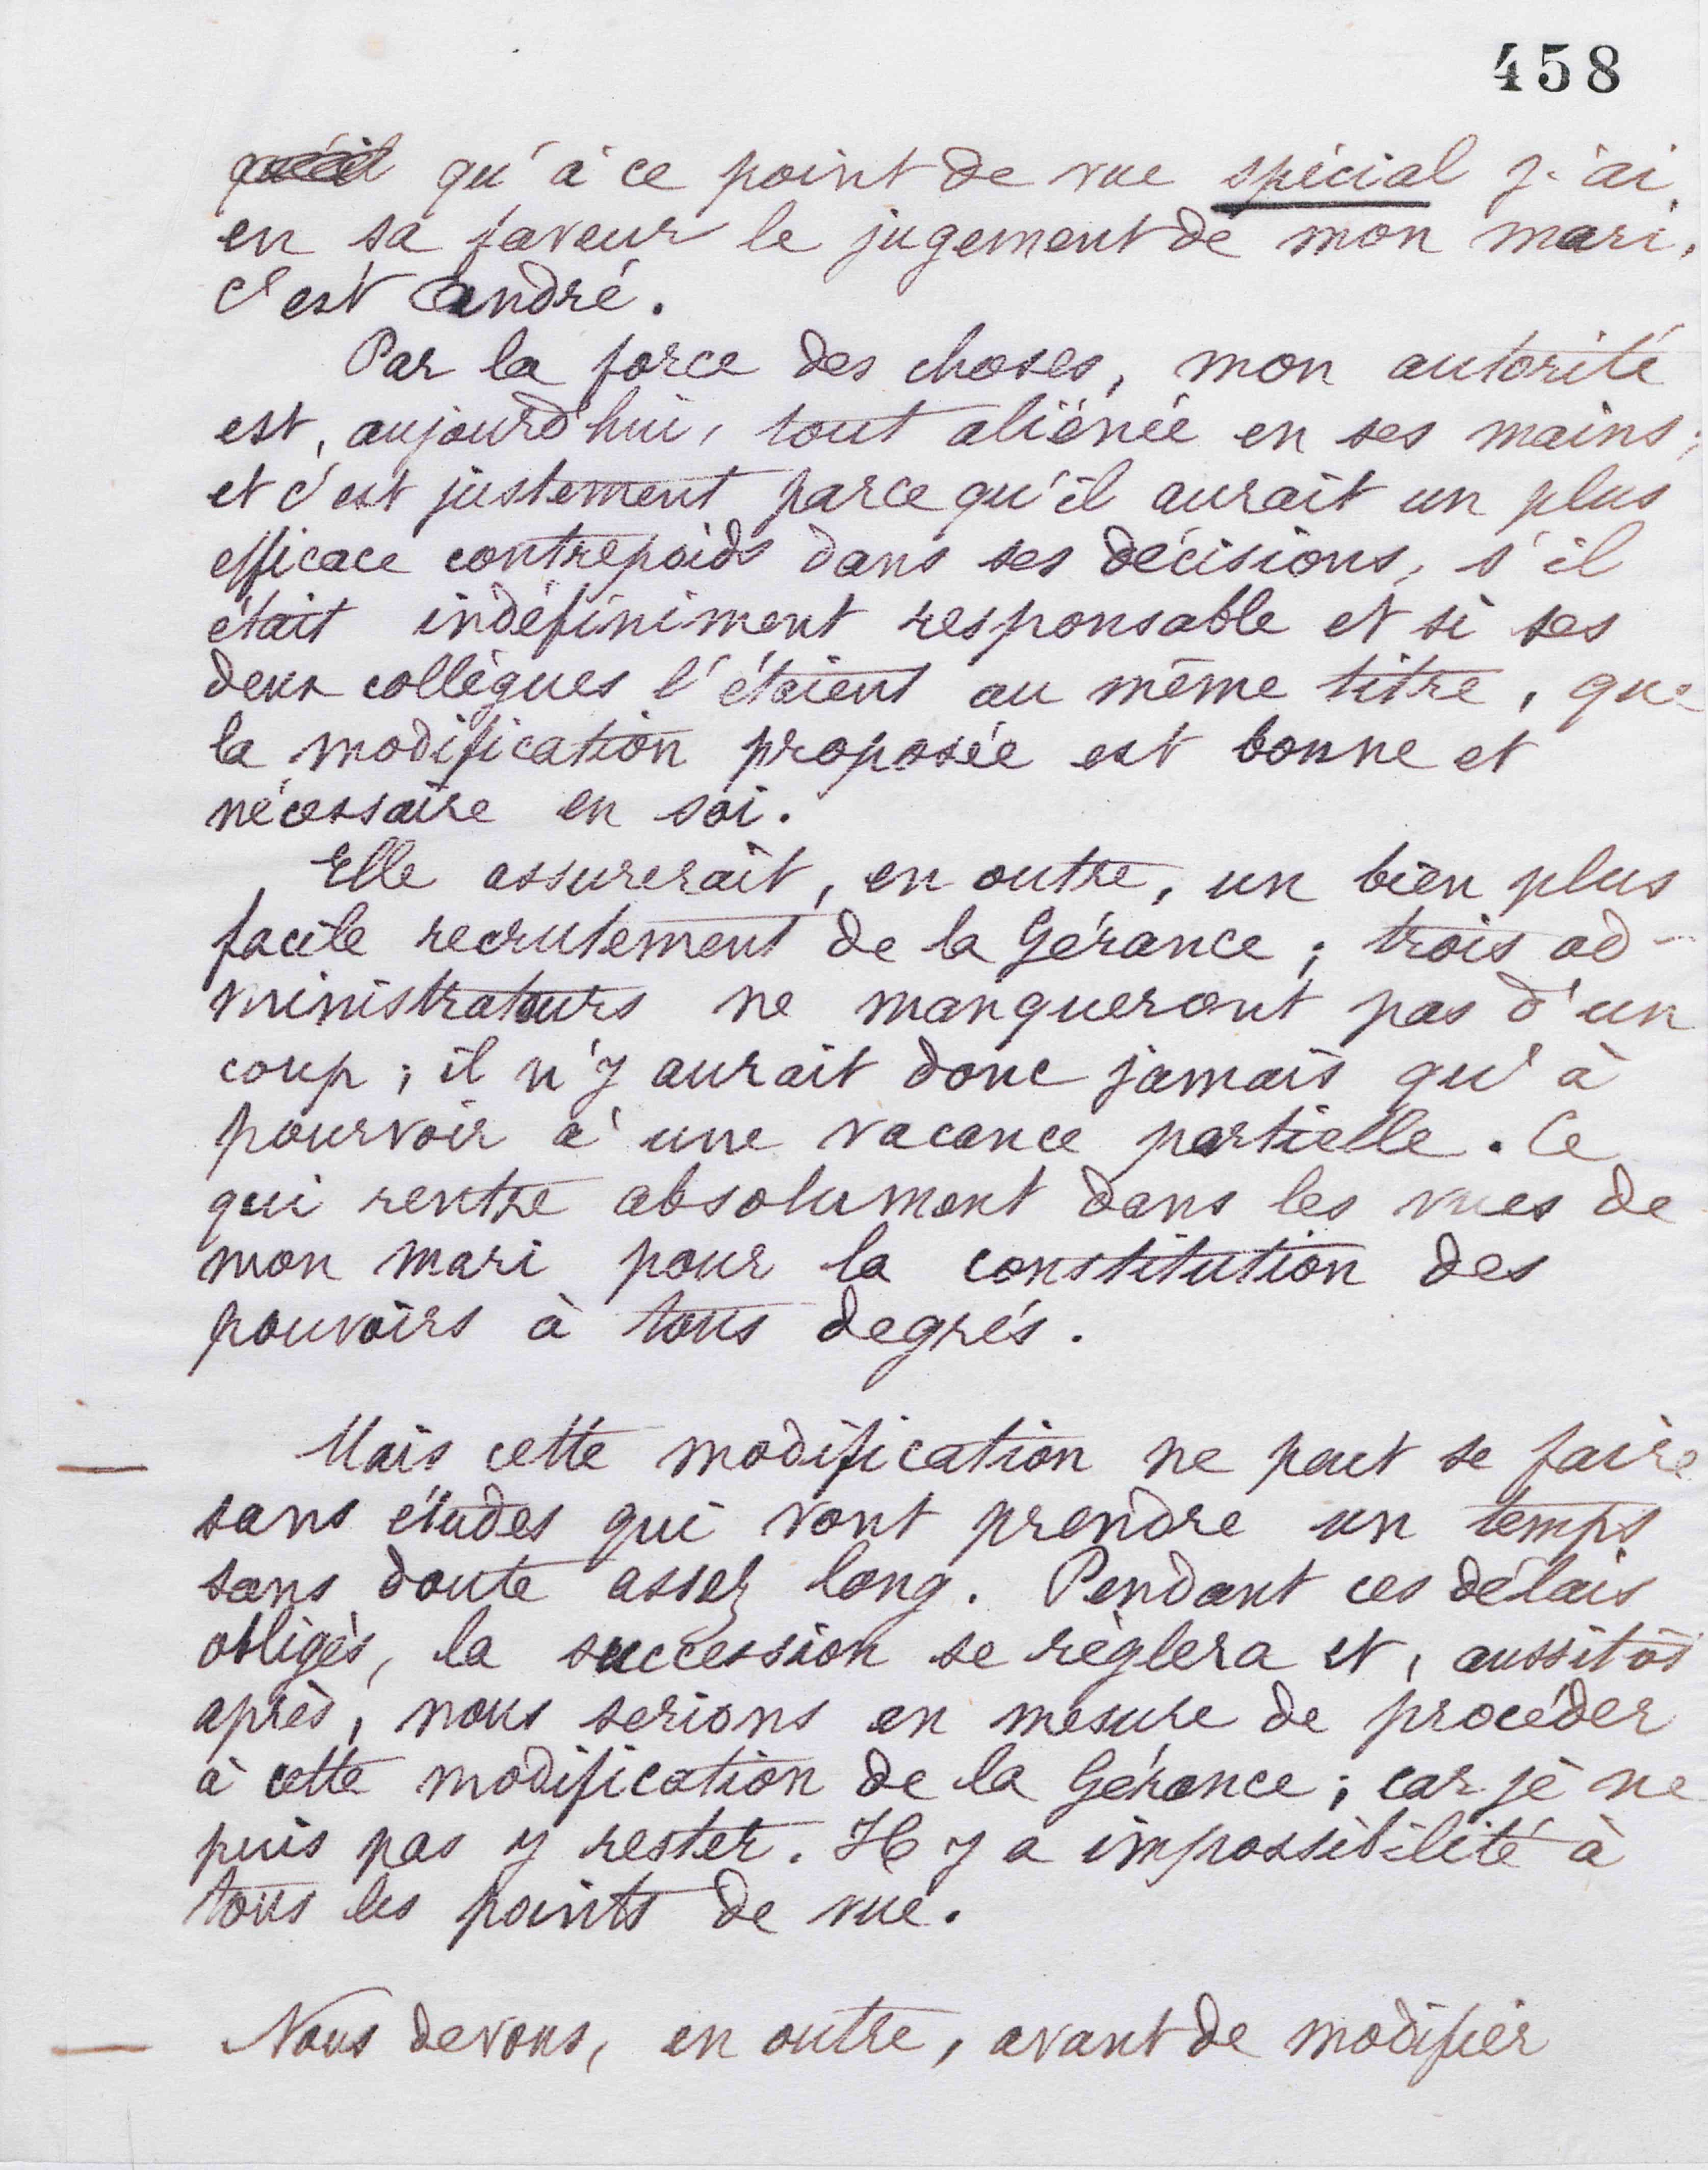 458
qu'à ce point de vue spécial j'ai
en sa faveur le jugement de mon mari,
c'est André.
Par la force des choses, mon autorité
est, aujourd'hui, tout aliénée en ses mains;
et c'est justement parce qu'il aurait un plus
efficace contrepoids dans ses décisions, s'il
était indéfiniment responsable et si ses
deux collègues l'étaient au même titre, que
la modification proposée est bonne et
nécessaire en soi.
Elle assurerait, en outre, un bien plus
facile recrutement de la Gérance; trois ad-
ministrateurs ne manqueront pas d'un
coup; il n'y aurait donc jamais qu'à
pourvoir à une vacance partielle. Ce
qui rentre absolument dans les vues de
mon mari pour la constitution des
pouvoirs à tous degrés.
Mais cette modification ne peut se faire
sans études qui vont prendre un temps
sans doute assez long. Pendant ces délais
obligés, la succession se règlera et, aussitôt
après, nous serions en mesure de procéder
à cette modification de la Gérance; car je ne
puis pas y rester. Il y a impossibilité à
tous les points de vue.
Nous devons, en outre, avant de modifier